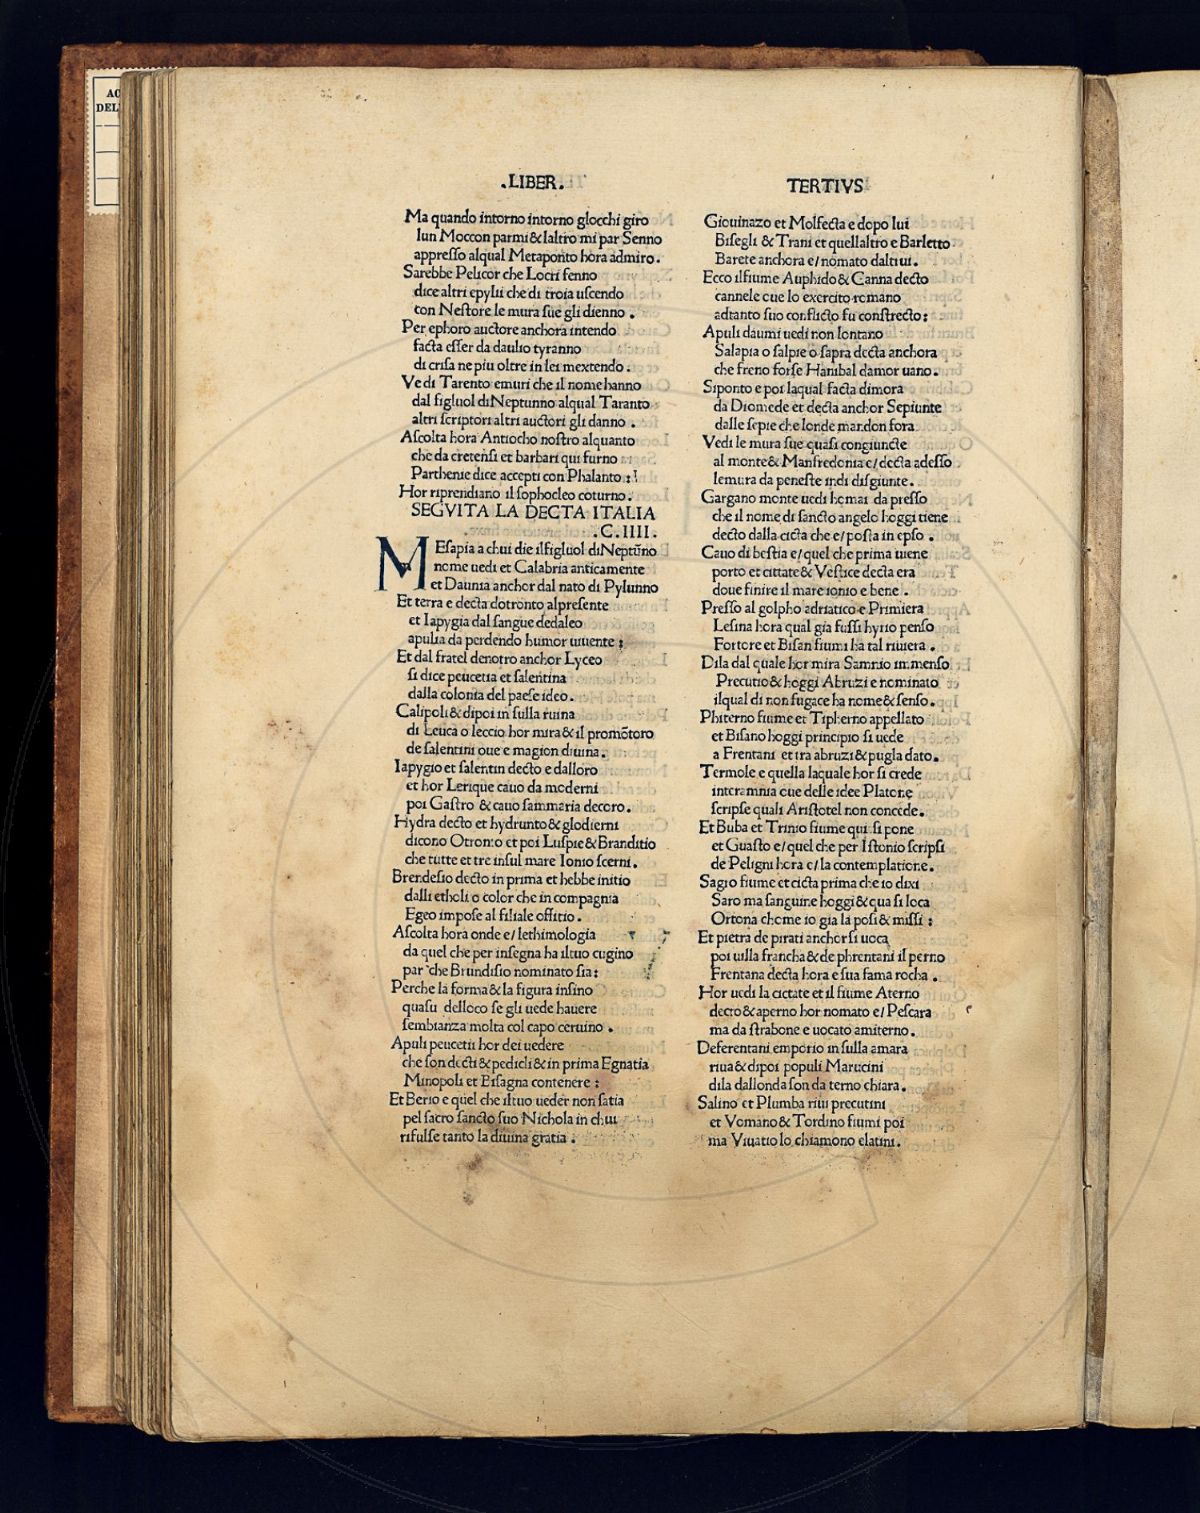 AC
DEL
.LIBER.
Ma quando intorno intorno glocchi giro
lun Moccon parmi & laltro mi par Senno
appresso alqual Metaponto hora admiro.
Sarebbe Pelicor che Locri fenno
dice altri epylii che di troia uscendo
con Nestore le mura sue gli dienno .
Per ephoro auctore anchora intendo
facta esser da daulio tyranno
di crisa ne piu oltre in lei mextendo .
Vedi Tarento emuri che il nome hanno
dal figluol di Neptunno alqual Taranto
altri scriptori altri auctori gli danno .
Ascolta hora Antiocho nostro alquanto
che da cretensi et barbari qui furno
Parthenie dice accepti con Phalanto :
Hor riprendiano il sophocleo coturno .
SEGVITA LA DECTA ITALIA
.C. IIII.
MEsapia a chui die ilfigluol di Neptūno
nome uedi et Calabria anticamente
et Daunia anchor dal nato di Pylunno
Et terra e decta dotronto alpresente
et Iapygia dal sangue dedaleo
apulia da perdendo humor uiuente :
Et dal fratel denotro anchor Lyceo
si dice peucetia et salentina
dalla colonia del paese ideo .
Calipoli & dipoi in sulla ruina
di Leuca o leccio hor mira & il promōtoro
de salentini oue e magion diuina .
Iapygio et salentin decto e dalloro
et hor Lerique cauo da moderni
poi Gastro & cauo sammaria decoro .
Hydra decto et hydrunto & glodierni
dicono Otronto et poi Luspie & Branditio
che tutte et tre insul mare Ionio scerni .
Brendesio decto in prima et hebbe initio
dalli etholi o color che in compagnia
Egeo impose al filiale offitio .
Ascolta hora onde e/ lethimologia
da quel che per insegna ha iltuo cugino
par che Brundisio nominato sia :
Perche la forma & la figura insino
quasu delloco se gli uede hauere
sembianza molta col capo ceruino .
Apuli peucetii hor dei uedere
che son decti & pedicli & in prima Egnatia
Minopoli et Bisagna contenere :
Et Berio e quel che iltuo ueder non satia
pel sacro sancto suo Nichola in chui
rifulse tanto la diuina gratia .
TERTIVS
Giouinazo et Molfecta e dopo lui
Bisegli & Trani et quellaltro e Barletto
Barete anchora e/ nomato daltrui .
Ecco ilfiume Auphido & Canna decto
cannele oue lo exercito romano
adtanto suo conflicto fu constrecto :
Apuli daumi uedi non lontano
Salapia o salpie o sapra decta anchora
che freno forse Hanibal damor uano .
Siponto e poi laqual facta dimora
da Diomede et decta anchor Sepiunte
dalle sepie che londe mandon fora
Vedi le mura sue quasi congiuncte
al monte & Manfredonia e/ decta adesso
lemura da peneste indi disgiunte .
Gargano monte uedi homai da presso
che il nome di sancto angelo hoggi tiene
decto dalla cicta che e/ posta in epso .
Cauo di bestia e/ quel che prima uiene
porto et cittate & Vestice decta era
doue finire il mare ionio e bene .
Presso al golpho adriatico e Primiera
Lesina hora qual gia fussi hyrio penso
Fortore et Bisan fiumi ha tal riuiera .
Dila dal quale hor mira Samnio immenso
Precutio & hoggi Abruzi e nominato
ilqual di non fugace ha nome & senso .
Phiterno fiume et Tipherno appellato
et Bisano hoggi principio si uede
a Frentani et tra abruzi & pugla dato .
Termole e quella laquale hor si crede
interamnia oue delle idee Platone
scripse quali Aristotel non concede .
Et Buba et Trinio fiume qui si pone
et Guasto e/ quel che per Istonio scripsi
de Peligni hora e/ la contemplatione .
Sagro fiume et cicta prima che io dixi
Saro ma sanguine hoggi & qua si loca
Ortona chome io gia la posi & missi :
Et pietra de pirati anchor si uoca
poi uilla francha & de phrentani il perno
Frentana decta hora e sua fama rocha .
Hor uedi la cictate et il fiume Aterno
decto & aperno hor nomato e/ Pescara
ma da strabone e uocato amiterno .
Deferentani emporio in sulla amara
riua & dipoi populi Marucini
dila dallonda son da terno chiara .
Salino et Plumba riui precutini
et Vomano & Tordino fiumi poi
ma Viuatio lo chiamono elatini .